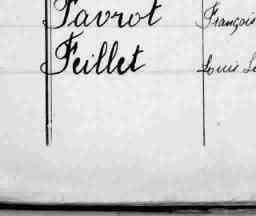 Favrot François
Feillet Louis